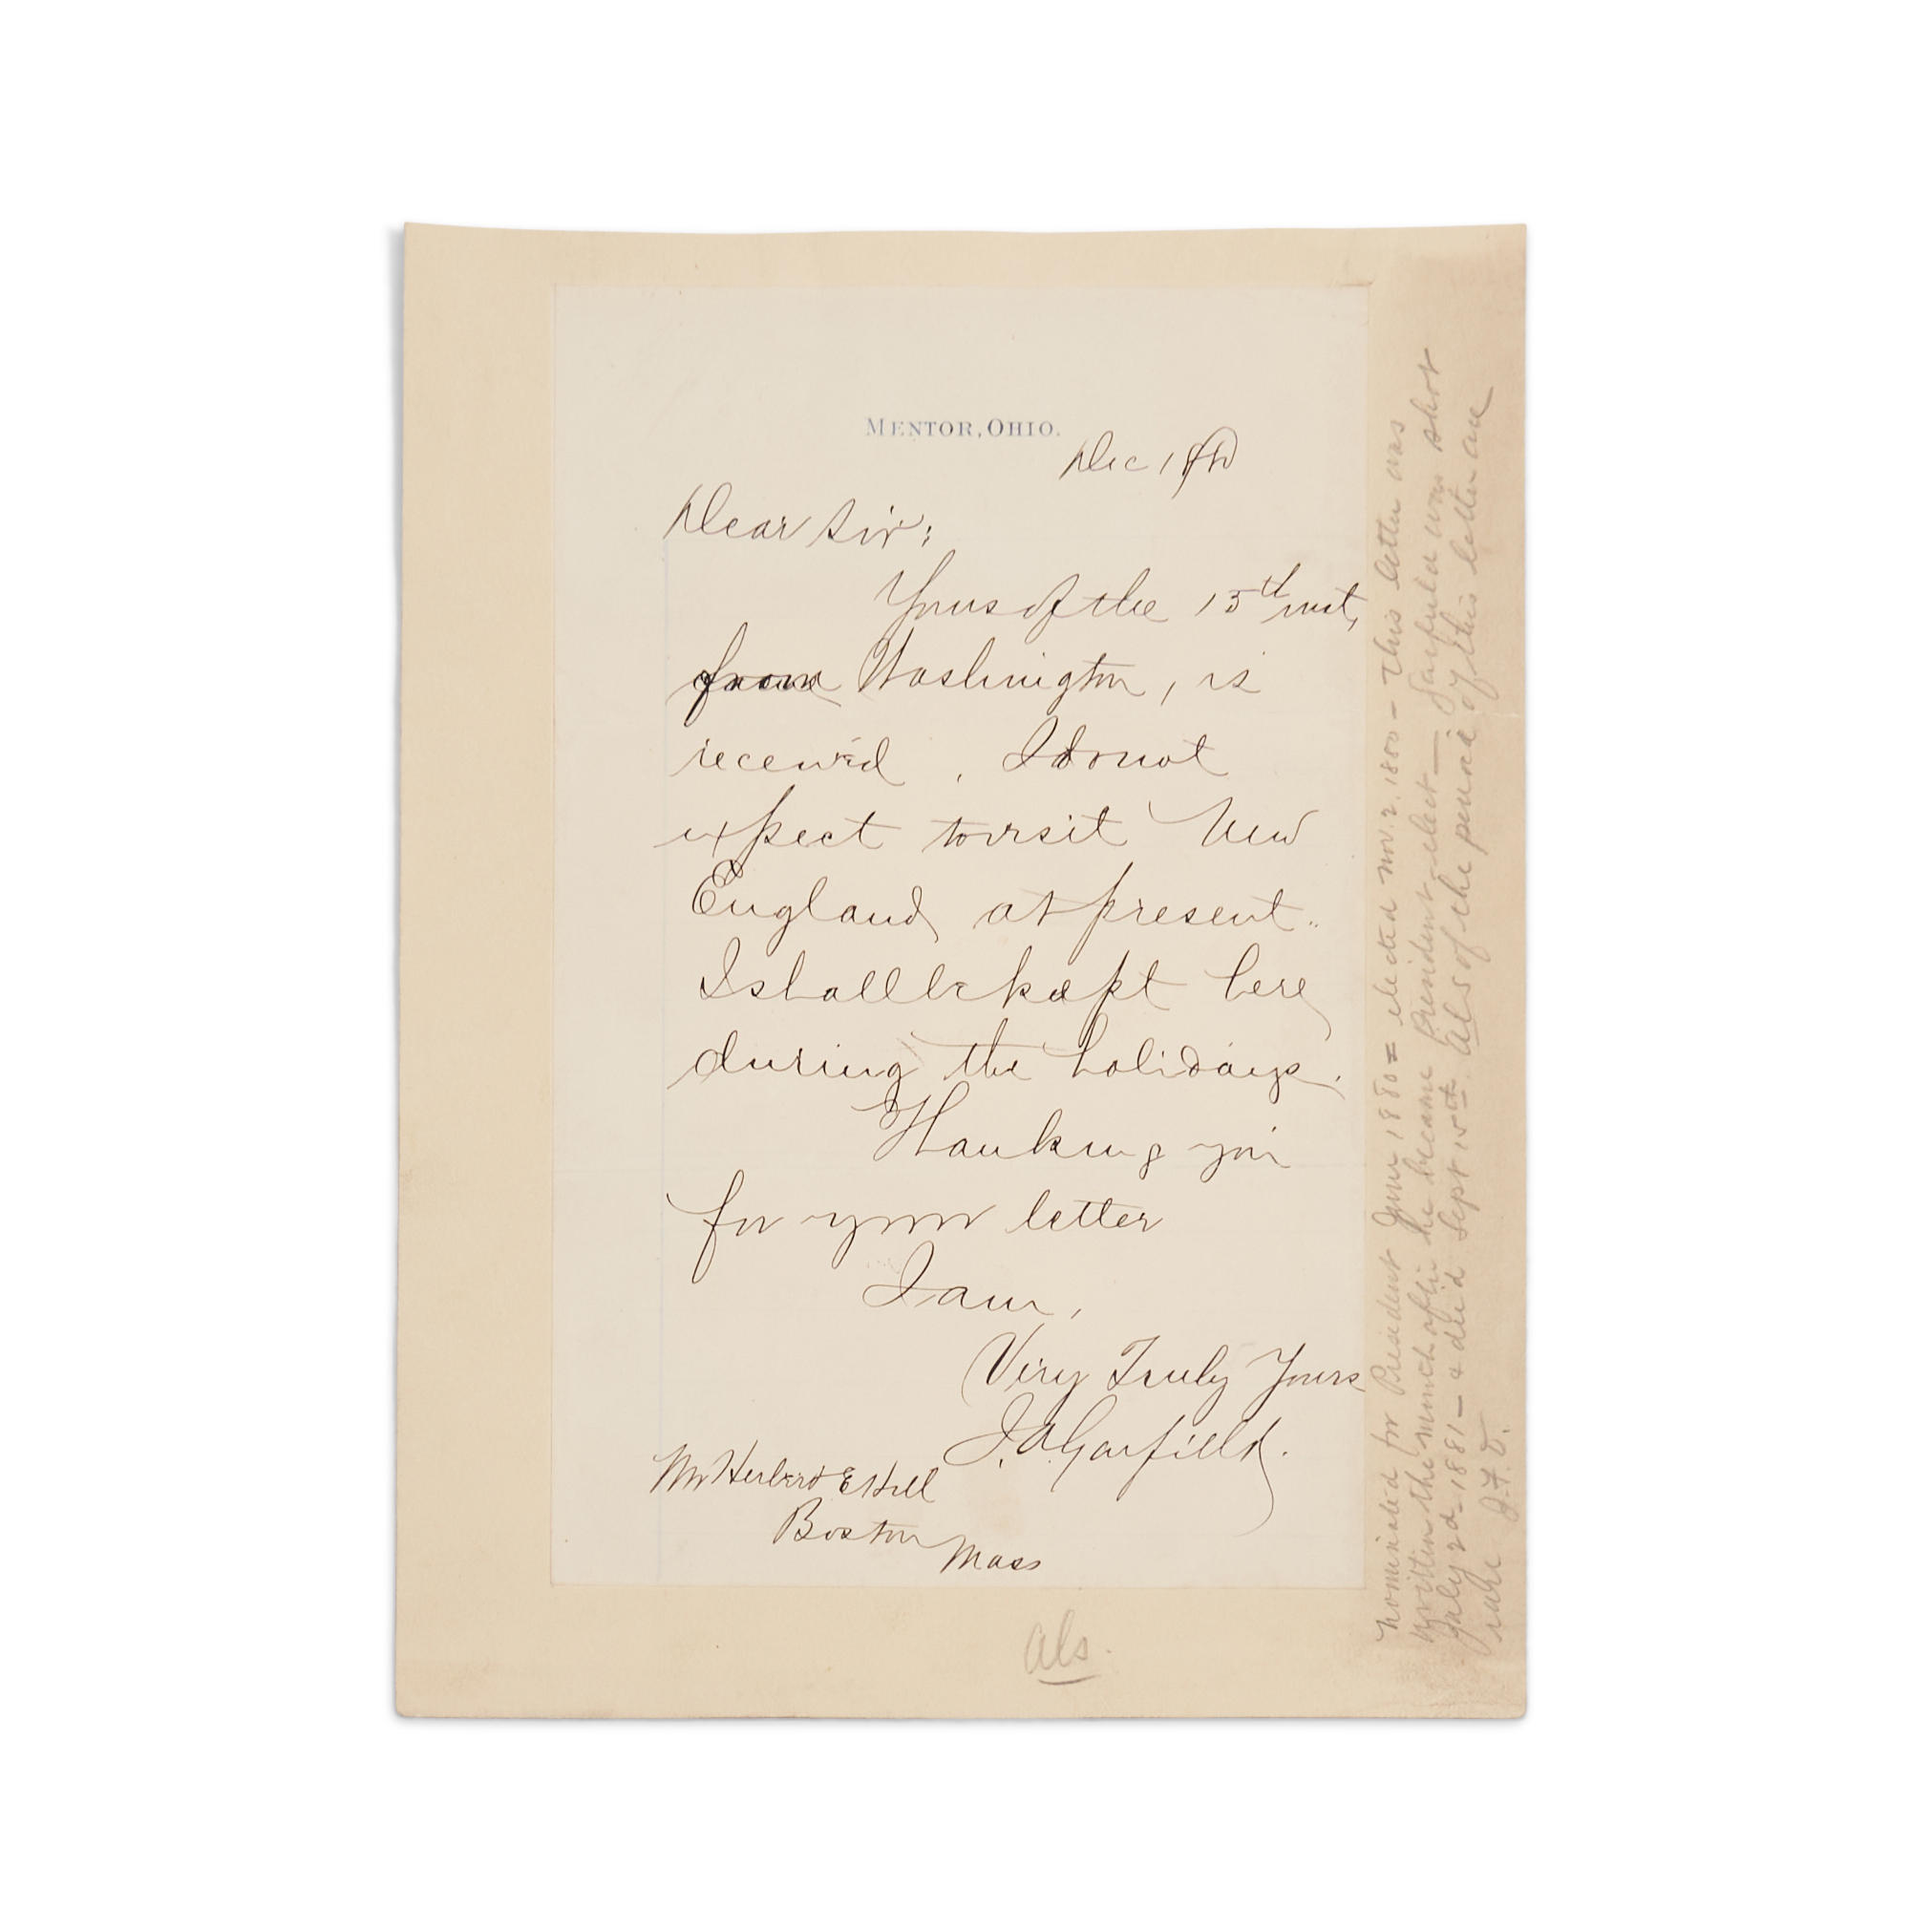 MENTOR, OHIO.
Dec 18
Dear Sir:
Yours of the 15th inst,
from Washington, is
received. I do not
expect to visit New
England at present.
I shall be kept here
during the holidays.
Thanking you
for your letter
I am,
Very Truly Yours
J. A. Garfield.
Mr Herbert E Hill
Boston
Mass
als.
nominated for President June 1880 = elected Nov. 2. 1880 - This letter was
written the month after he became President-elect - Garfield was shot
July 2d - 1881 - & died Sept 15th. ALS of the period of this letter are
rare J. F. D.